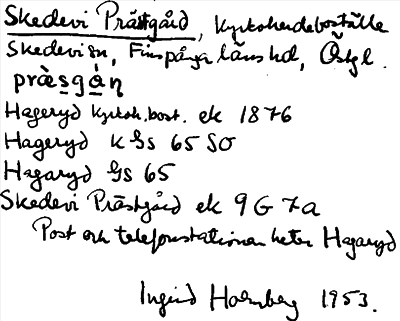 Skedevi Prästgård, Kyrkoherdeboställe
Skedevi sn, Finspånga läns hd, Östgl.
præsgån
Hageryd kyrkoh.bost. ek 1876
Hageryd K Gs 65 SO
Hagaryd Gs 65
Skedevi Prästgård ek 9 G 7a
Post och telefonstationen heter Hagaryd
Ingrid Holmberg 1953.